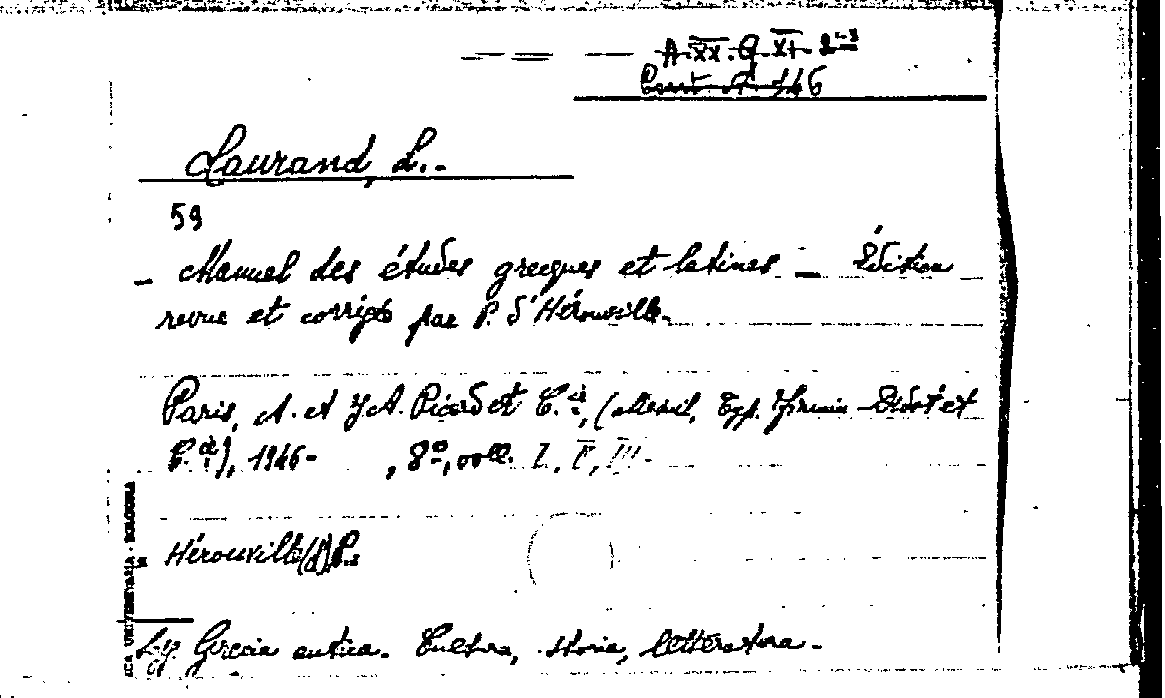 A. XX. G. XI. 2
Cont. A 446
Laurand, L.-
59
- Manuel des études grecques et latines - Édition
revue et corrigée par P. d'Hérouville.
Paris, A. et J. A. Picard et C.ie, (Mesnil, Typ. Firmin-Didot et
C.ie), 1946-        , 8º, voll. I, II, III-
Hérouville (d') P.-
Grecia antica. Cultura, storia, letteratura.
ICA UNIVERSITARIA - BOLOGNA